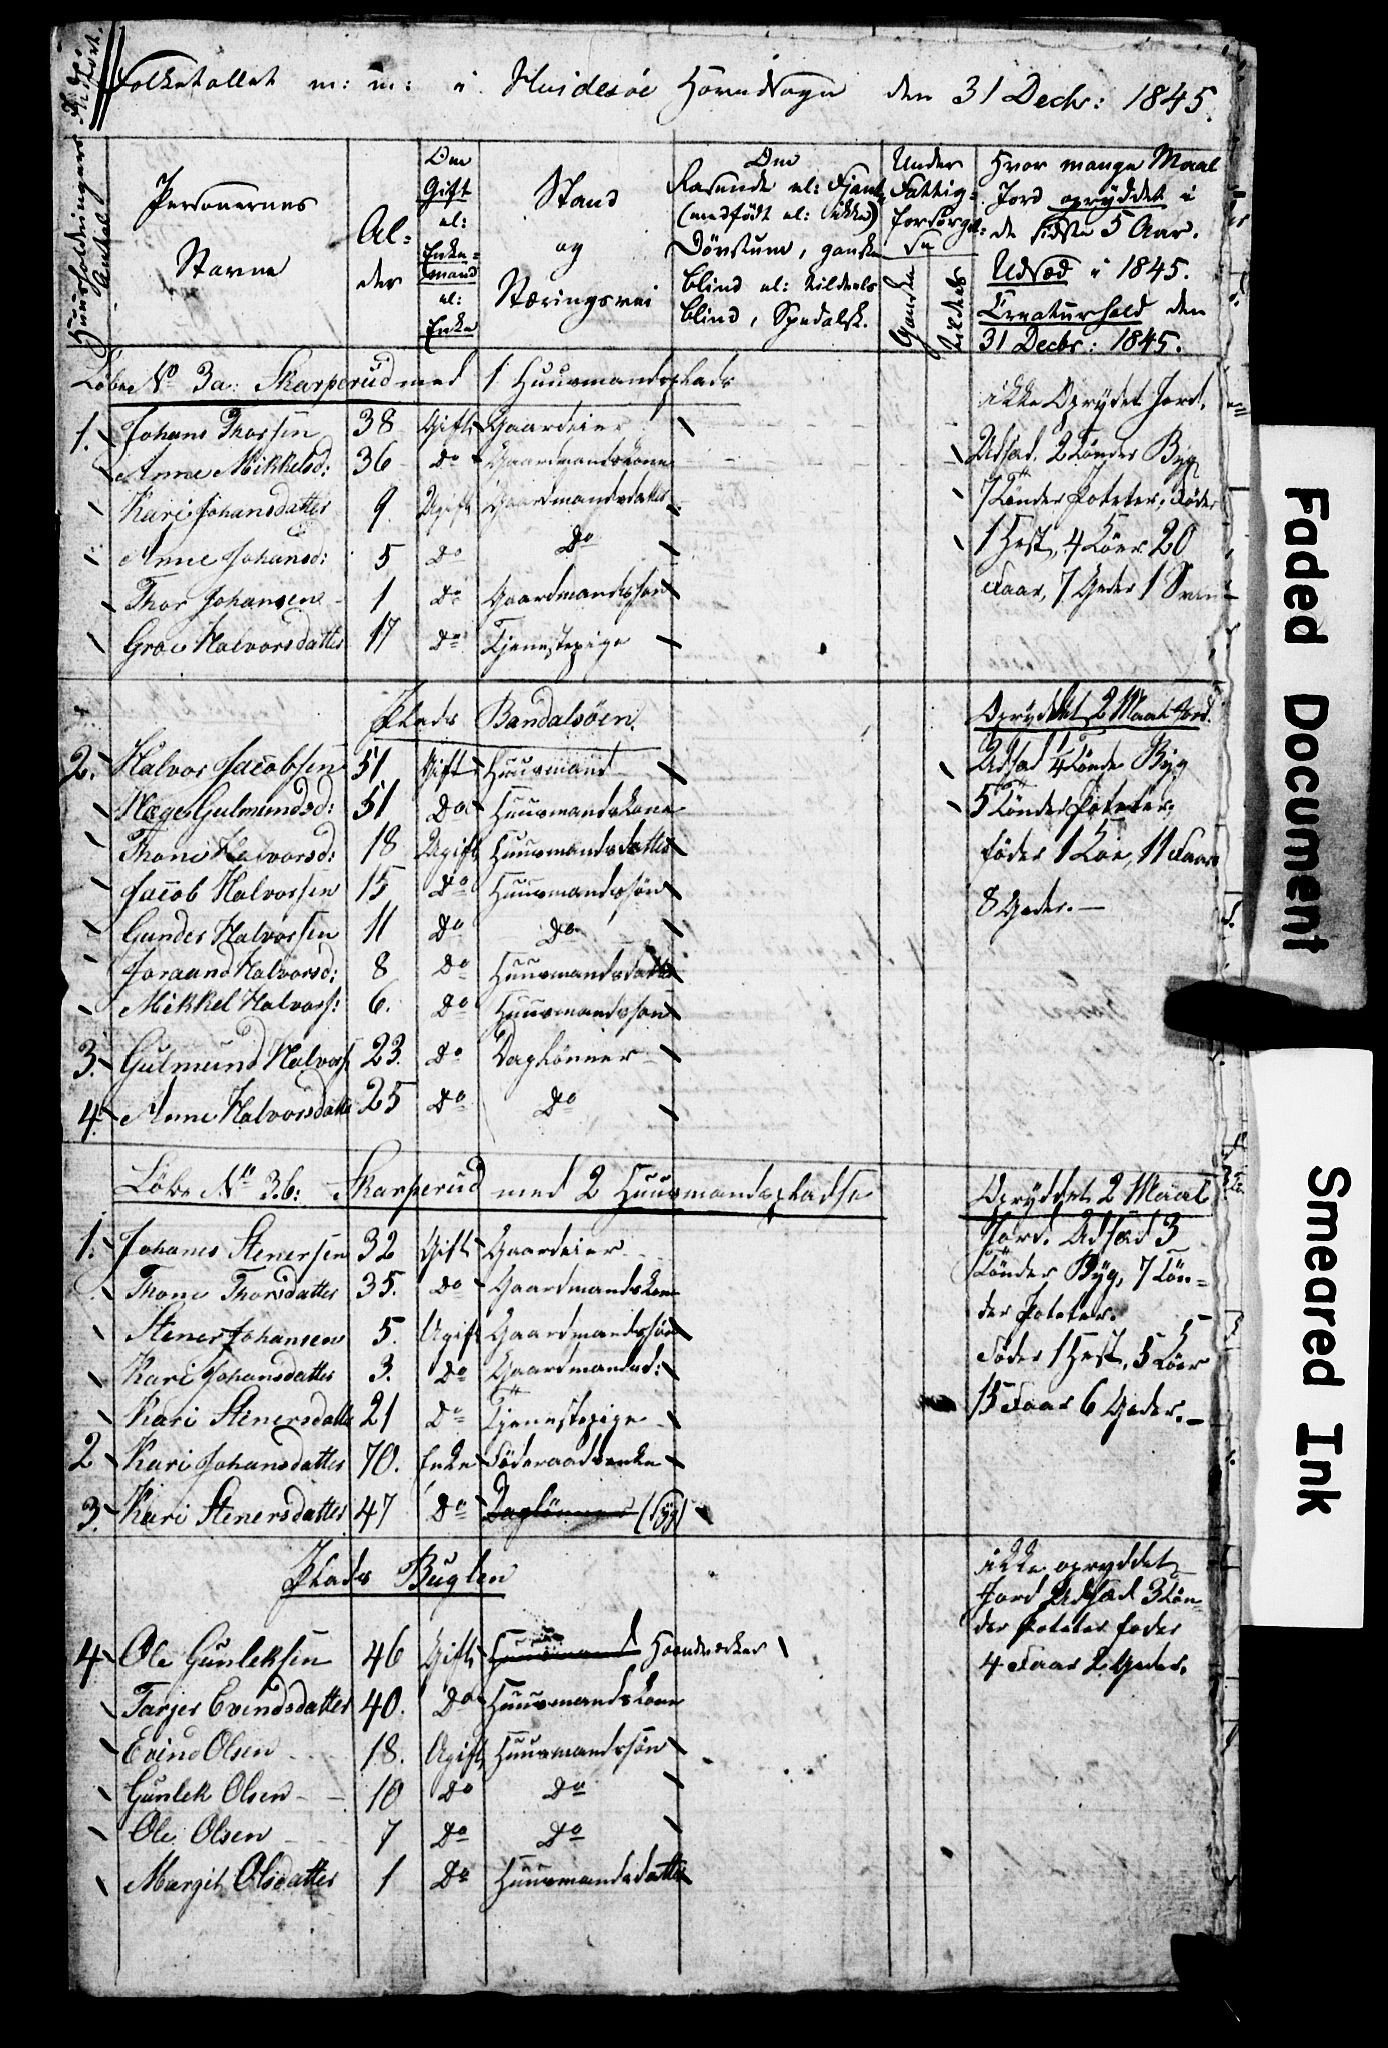 Folketallet m: m: i Hvidesøe Hovedsogn den 31 Decbr: 1845.
Huusholdningers Antal
Personernes Navne
Al: der
Om Gift el: Enke= mand el: Enke
Stand og Næringsvei
Om Rasende el: Fjante (medfödt el: ikke) Dövstum, ganske blind el: tildeels blind, Spedalsk.
Under Fattig= forsörgelse
Ganske
tildeels
Hvor mange Maal Jord opryddet i de sidste 5 Aar.
Udsæd i 1845.
Creaturhold den 31 Decbr: 1845.
Löbe No 3a: Skarperud med 1 Huusmandsplads
ikke Oprydet Jord,
1. Johans Thorsen 38 Gift Gaardeier
Udsæd. 2 Tönder Byg
Anne Mikkelsd: 36 Do Gaardmandskone
7 Tönder Poteter, föder
Kari Johansdatter 9 Ugift Gaardmandsdatter
1 Hest, 4 Köer 20
Anne Johansd: 5 Do Do
Faar, 7 Geder 1 Sviin
Thor Johansen 1 Do Gaardmandssøn
Groe Halvorsdatter 17 Do Tjenestepige
Plads Bandalsöen.
Opryddet 2 Maal Jord.
2. Halvor Jacobsen 51 Gift Huusmand
Udsæd 1/4 Tönde Byg
Hæge Gulmundsd: 51 Do Huusmandskone
5 Tönder Poteter,
Thone Halvorsd: 18 Ugift Huusmandsdatter
föder 1 Koe, 11 Faar
Jacob Halvorsen 15 Do Huusmandssön
8 Geder.—
Gunder Halvorsen 11 Do Do
Joraand Halvorsd: 8 Do Huusmandsdatter
Mikkel Halvors: 6. Do Huusmandssøn
3. Gulmund Halvors 23. Do Daglönner
4. Anne Halvorsdatter 25 Do Do
Löbe No 3.b: Skarperud med 2 Huusmandspladse
Opryddet 2 Maal
1. Johanes Stenersen 32 Gift Gaardeier
Jord. Udsæd 3
Thone Thorsdatter 35. Do Gaardmandskone
Tönder Byg, 7 Tön=
Stener Johansen 5. Ugift Gaardmandssön
der Poteter.
Kari Johansdatter 3. Do Gaardmandsd:
Föder 1 Hest, 5 Köer
Kari Stenersdatter 21 Do Tjenestepige
15 Faar 6 Geder.—
2 Kari Johansdatter 70. Enke Föderaadsenke
3. Kari Stenersdatter 47 Do Daglönner
Plads Buglen
ikke opryddet
Jord Udsæd 3 Tön=
der Poteter föder
4 Ole Gunleksen 46 Gift Huusmand Haandværker
4 Faar 2 Geder.
Tarjer Evindsdatter 40. Do Huusmandskone
Evind Olsen 18. Ugift Huusmandssön
Gunlek Olsen 10 Do Do
Ole Olsen 7 Do Do
Margit Olsdatter 1 Do Huusmandsdatter
Faded Document
Smeared Ink